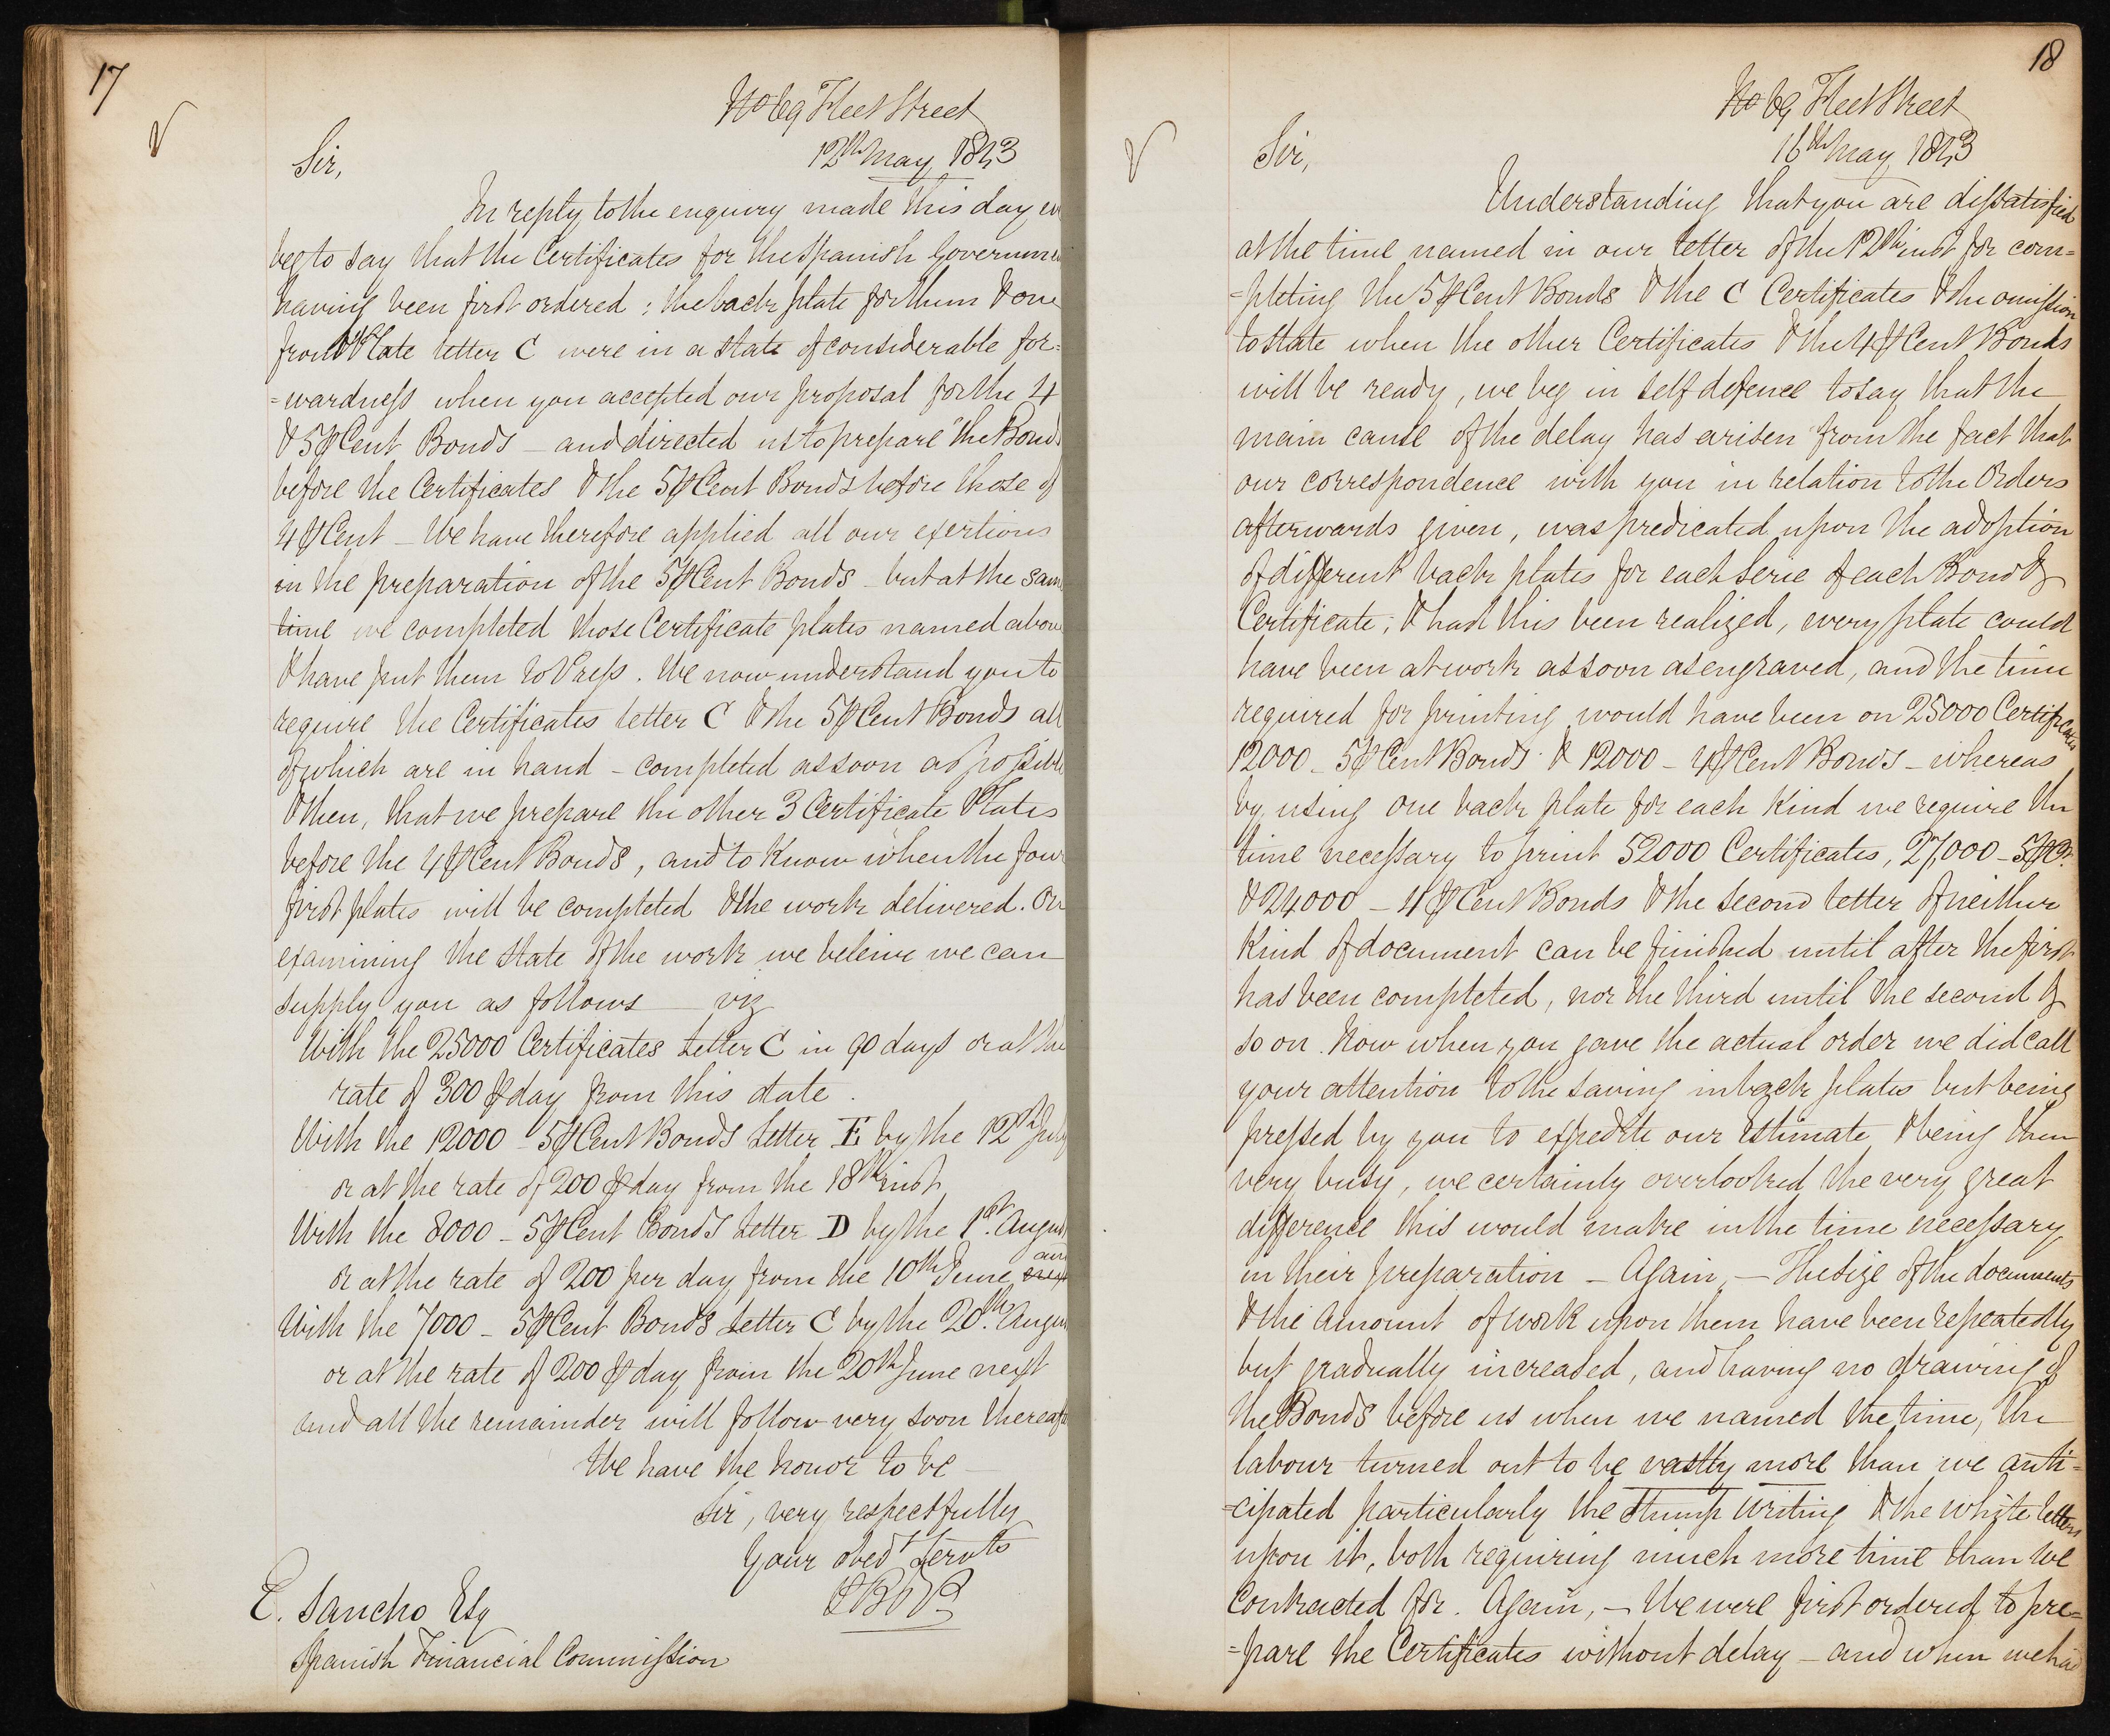 17
No 69 Fleet Street
12th May 1843
Sir,
In reply to the enquiry made this day we
beg to say that the Certificates for the Spanish Governme
having been first ordered; the back plate for them & one
front Plate letter C were in a state of considerable for=
=wardness when you accepted our proposal for the 4
& 5 ⅌ Cent Bonds – and directed us to prepare the Bonds
before the Certificates & the 5 ⅌ Cent Bonds before those of
4 ⅌ Cent – We have therefore applied all our exertions
in the preparation of the 5 ⅌ Cent Bonds – but at the same
time we completed those Certificate plates named above
& have put them to Press. We now understand you to
require the Certificates letter C & the 5 ⅌ Cent Bonds all
of which are in hand – completed as soon as possible
& then, that we prepare the other 3 Certificate Plates
before the 4 ⅌ Cent Bonds, and to know when the four
first plates will be completed & the work delivered. On
examining the state of the work we beleive we can
supply you as follows viz
With the 25000 Certificates Letter C in 90 days or at the
rate of 300 ⅌ day from this date.
With the 12000 – 5 ⅌ Cent Bonds Letter E by the 12th July
or at the rate of 200 ⅌ day from the 18th inst
With the 8000 – 5 ⅌ Cent Bonds Letter D by the 1st. August
or at the rate of 200 per day from the 10th June next
With the 7000 – 5 ⅌ Cent Bonds Letter C by the 20th. Augu
or at the rate of 200 ⅌ day from the 20th June next
and all the remainder will follow very soon thereaf
We have the honor to be
Sir, very respectfully
Your obedt Servts
PB & P
E. Sancho Esq
Spanish Financial Commission
18
No 69 Fleet Street
16th May 1843
Sir,
Understanding that you are dissatisfied
at the time named in our letter of the 12th inst for com=
=pleting the 5 ⅌ Cent Bonds & the C Certificates & the omission
to state when the other Certificates & the 4 ⅌ Cent Bonds
will be ready, we beg in self defence to say that the
main cause of the delay has arisen from the fact that
our correspondence with you in relation to the Orders
afterwards given, was predicated upon the adoption
of different back plates for each Serie of each Bond &
Certificate; & had this been realized, every plate could
have been at work as soon as engraved, and the time
required for printing would have been on 25000 Certificates
12000 – 5 ⅌ Cent Bonds & 12000 – 4 ⅌ Cent Bonds – whereas
by using one back plate for each Kind we require the
time necessary to print 52000 Certificates, 27,000 – 5 ⅌ Ct.
& 24000 – 4 ⅌ Cent Bonds & the second letter of neither
Kind of document can be finished until after the first
has been completed, nor the third until the second &
so on. Now when you gave the actual order we did call
your attention to the saving in back plates but being
pressed by you to expedite our Estimate & being then
very busy, we certainly overlooked the very great
difference this would make in the time necessary
in their preparation – Again, – The size of the documents
& the amount of work upon them have been repeatedly
but gradually increased, and having no drawing of
the Bonds before us when we named the time, the
labour turned out to be vastly more than we anti=
=cipated particularly the Stump Writing & the white letters
upon it, both requiring much more time than we
Contracted for. Again, – We were first ordered to pre=
=pare the Certificates without delay – and when we had